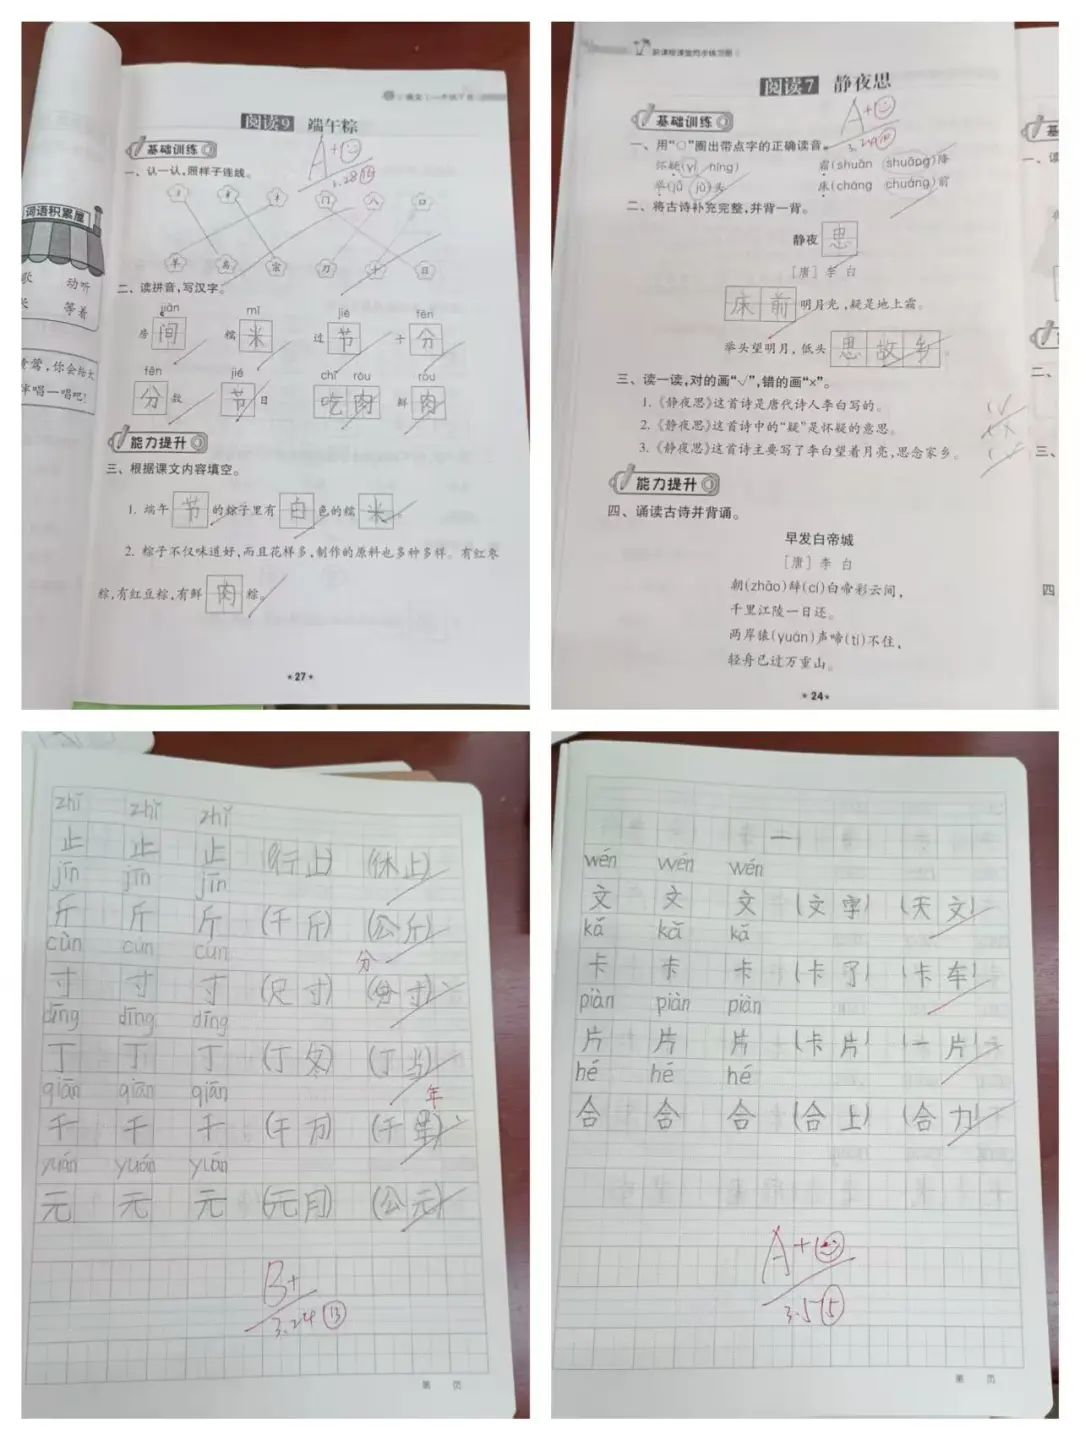 阅读9 端午粽
A+
3.28
基础训练
一、认一认,照样子连线。
门 八 口
羊 鸟 宗 刀 十 日
二、读拼音,写汉字。
jiān mǐ jié fēn
房间 糯米 过节 十分
fēn jié chī ròu ròu
分数 节日 吃肉 鲜肉
能力提升
三、根据课文内容填空。
1. 端午节的粽子里有白色的糯米。
2. 粽子不仅味道好,而且花样多,制作的原料也多种多样。有红枣
粽,有红豆粽,有鲜肉粽。
★27★
词语积累屋
歌 动听
等着
莺,你会给大
唱一唱吧!
新课程课堂同步练习册
阅读7 静夜思
A+
3.24
基础训练
一、用“○”圈出带点字的正确读音。
怀疑(yí níng) 霜(shuān shuāng)降
举(jǔ jù)头 床(cháng chuáng)前
二、将古诗补充完整,并背一背。
静夜思
[唐] 李 白
床前明月光,疑是地上霜。
举头望明月,低头思故乡。
三、读一读,对的画“√”,错的画“×”。
1.《静夜思》这首诗是唐代诗人李白写的。 √
2.《静夜思》这首诗中的“疑”是怀疑的意思。 ×
3.《静夜思》这首诗主要写了李白望着月亮,思念家乡。 √
能力提升
四、诵读古诗并背诵。
早发白帝城
[唐] 李 白
朝(zhāo)辞(cí)白帝彩云间,
千里江陵一日还。
两岸猿(yuán)声啼(tí)不住,
轻舟已过万重山。
★24★
zhǐ zhǐ zhǐ
止 止 止 (行止) (休止)
jīn jīn jīn
斤 斤 斤 (千斤) (公斤)
cùn cùn cùn
分
寸 寸 寸 (尺寸) (分寸)
dīng dīng dīng
丁 丁 丁 (丁文) (丁当)
qiān qiān qiān
年
千 千 千 (千万) (千年)
yuán yuán yuán
元 元 元 (元月) (公元)
B+
3.24 13
第 页
wén wén wén
文 文 文 (文字) (天文)
kǎ kǎ kǎ
卡 卡 卡 (卡了) (卡车)
piàn piàn piàn
片 片 片 (卡片) (一片)
hé hé hé
合 合 合 (合上) (合力)
A+
3.5 5
第 页